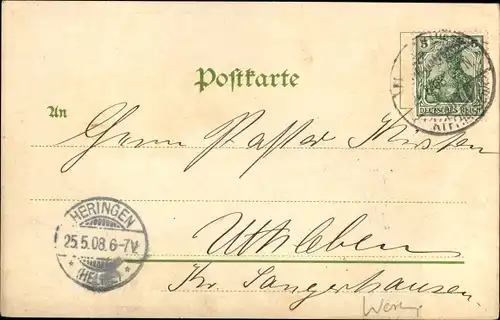 5 5
DEUTSCHES REICH
Postkarte
An
Herrn Pastor Kirsten
HERINGEN
25.5.08.6-7V.
*(HELME)*
Uthleben
Kr. Sangerhausen